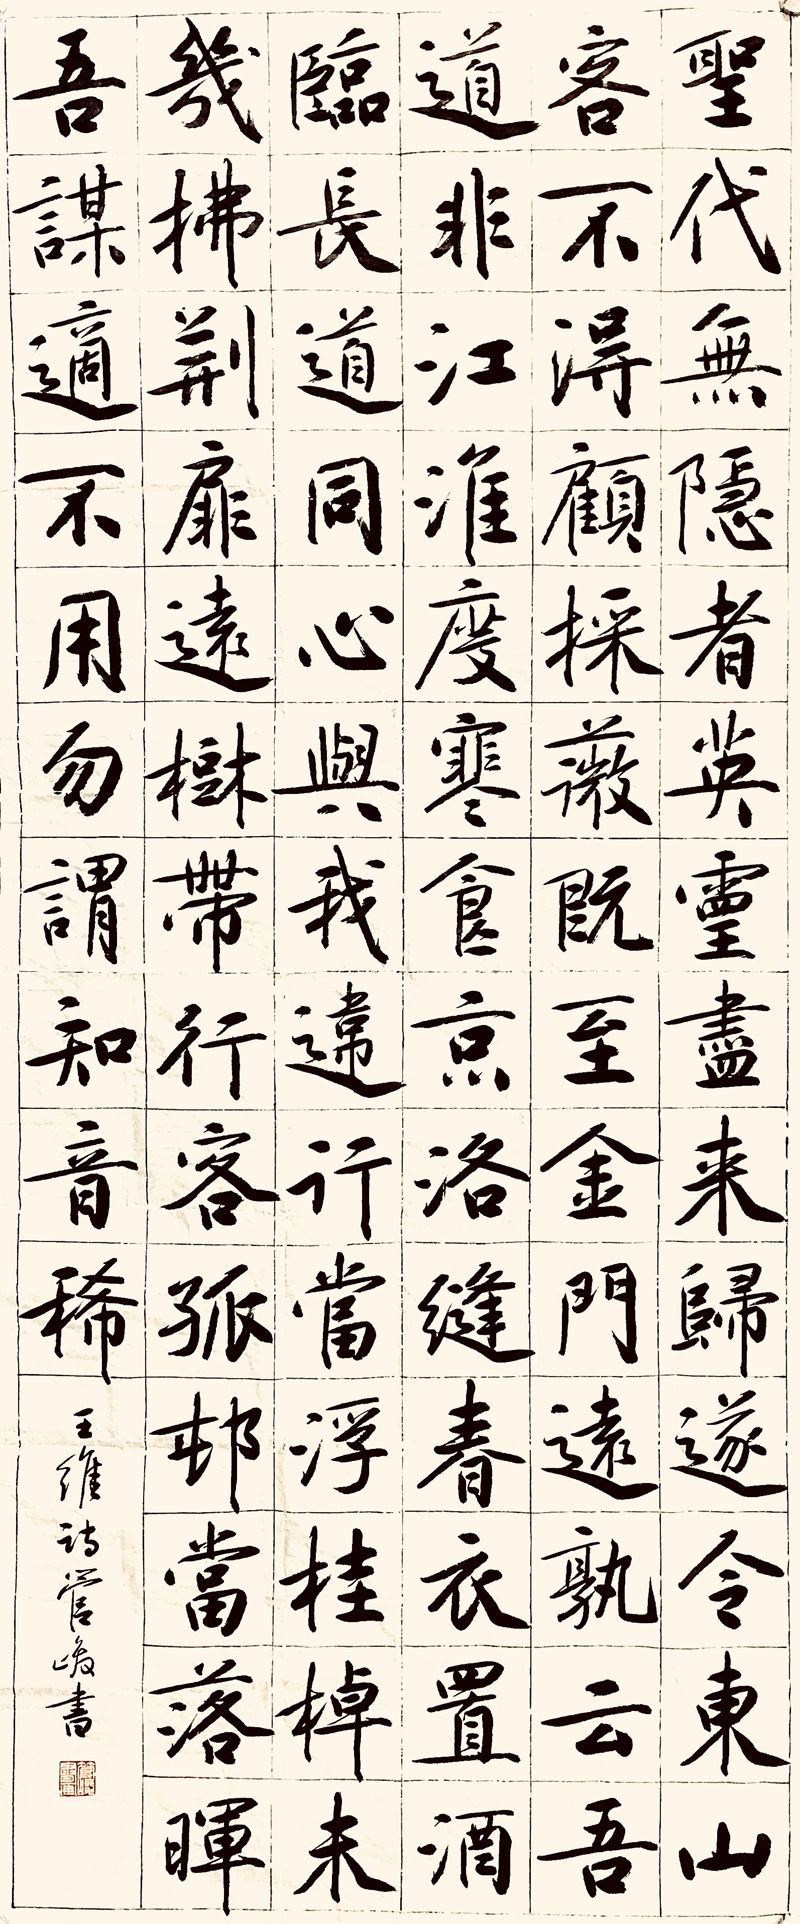 聖代無隱者英靈盡来歸遂令東山
客不得顧採薇既至金門遠孰云吾
道非江淮度寒食京洛縫春衣置酒
臨長道同心與我違行當浮桂棹未
幾拂荊扉遠樹帶行客孤邨當落暉
吾謀適不用勿謂知音稀
王維詩管峻書